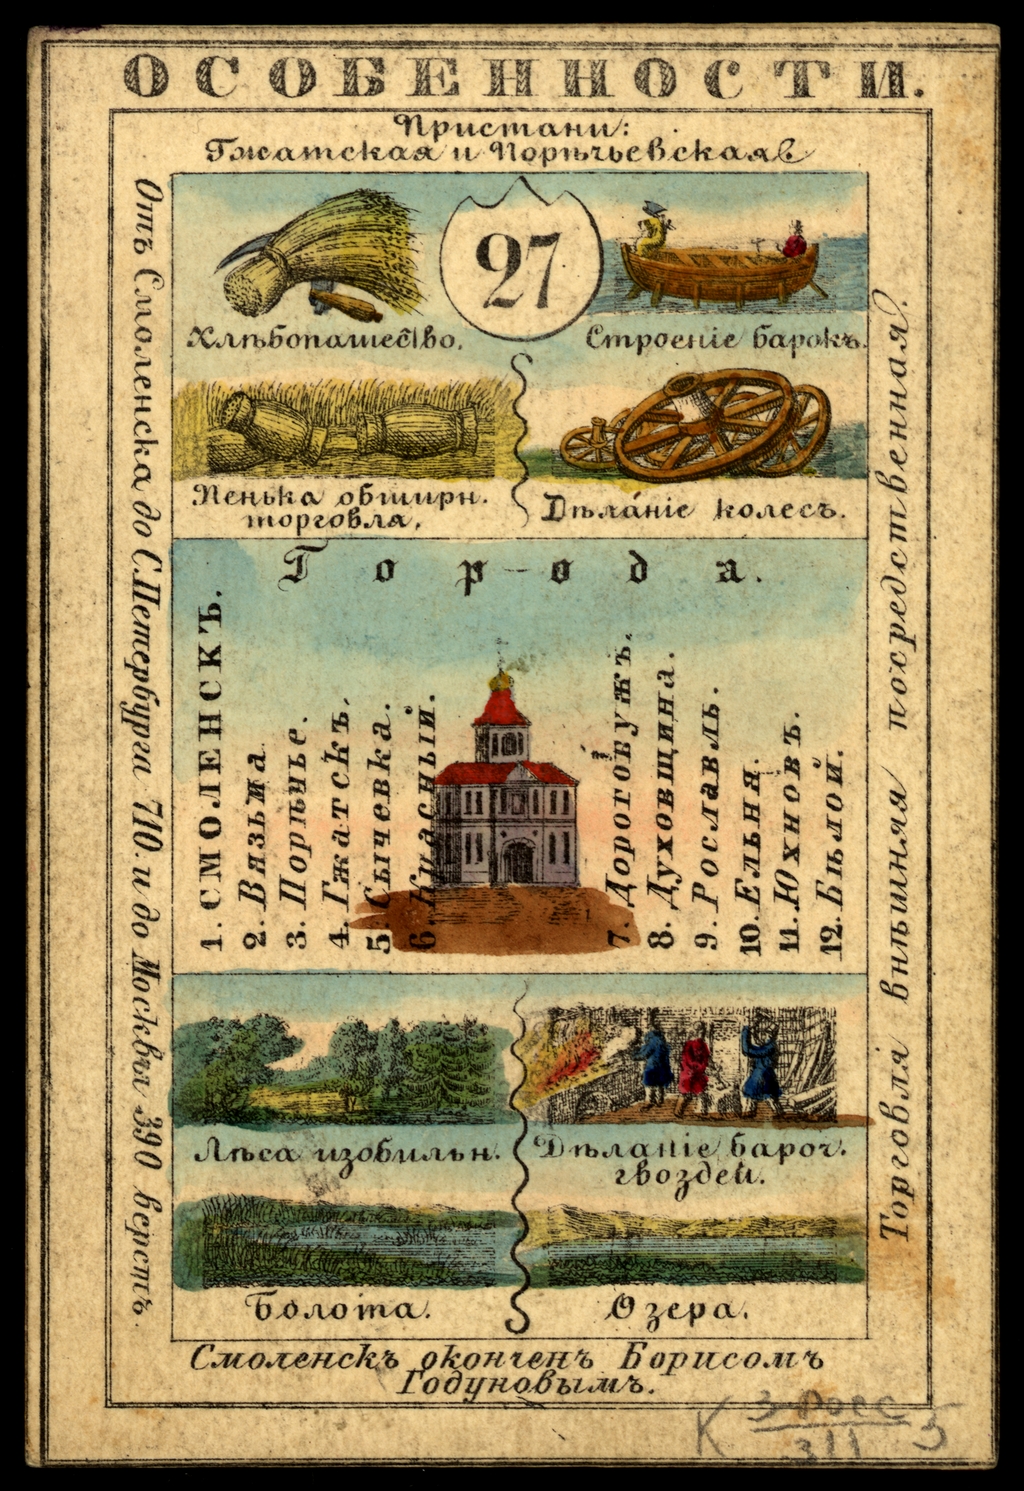 ОСОБЕННОСТИ.
Пристани:
Гжатская и Порѣчьевская
27
Хлѣбопашество.
Строеніе барокъ.
Пенька обширн.
торговля,
Дѣла́ніе колесъ.
Города.
1. СМОЛЕНСКЪ.
2. Вязьма
3. Порѣчье.
4. Гжатскъ.
5. Сычевка.
6. Красный.
7. Дорогобужъ.
8. Духовщина.
9. Рославль.
10. Ельня.
11. Юхновъ.
12. Бѣлой.
Лѣса изобильн.
Дѣланіе бароч.
гвоздей.
Болота.
Озера.
Смоленскъ окончен Борисомъ
Годуновымъ.
Отъ Смоленска до С.Петербурга 710. и до Москвы 390 верстъ.
Торговля внѣшняя посредственная.
К 3 росс 5
311